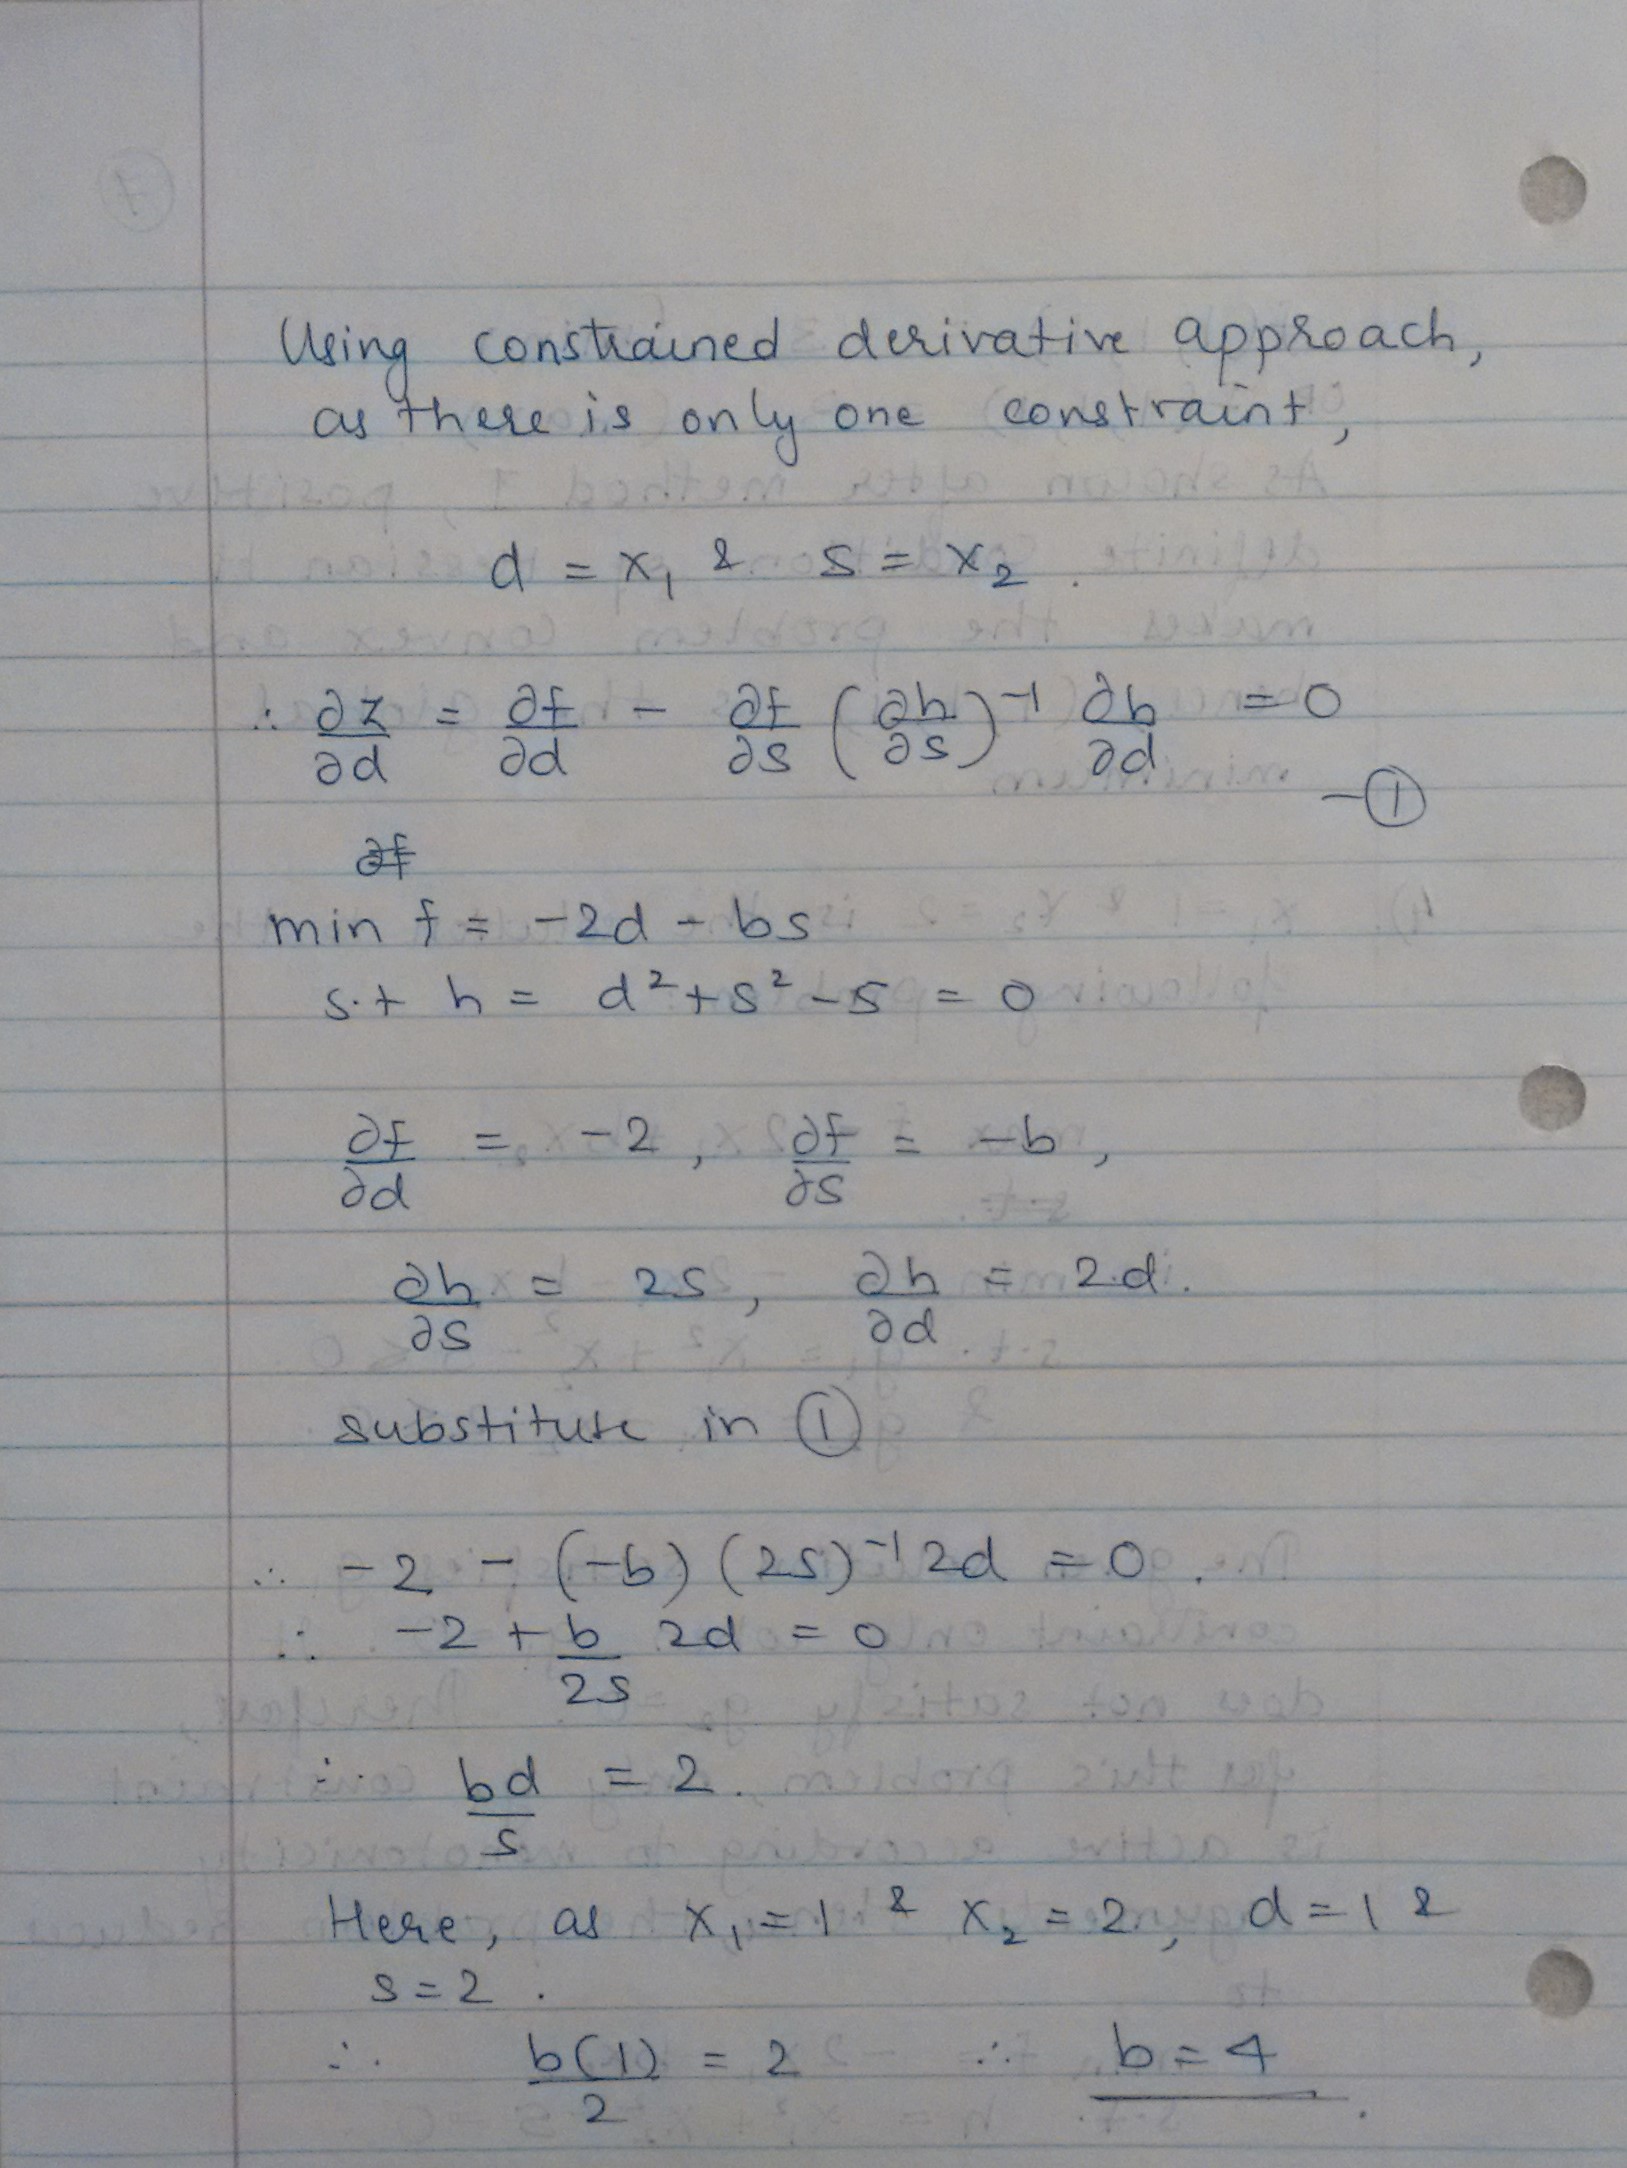 Using constrained derivative approach,
as there is only one constraint,
d = x₁ & s = x₂.
∴ ∂z/∂d = ∂f/∂d - ∂f/∂s (∂h/∂s)⁻¹ ∂h/∂d = 0
-①
∂f
min f = -2d - bs
s.t h = d² + s² - 5 = 0
∂f/∂d = -2, ∂f/∂s = -b,
∂h/∂s = 2s, ∂h/∂d = 2d.
substitute in ①
∴ -2 - (-b) (2s)⁻¹ 2d = 0.
∴ -2 + b/2s 2d = 0
∴ bd/s = 2.
Here, as x₁ = 1 & x₂ = 2, d = 1 &
s = 2.
∴ b(1)/2 = 2 ∴ b = 4.